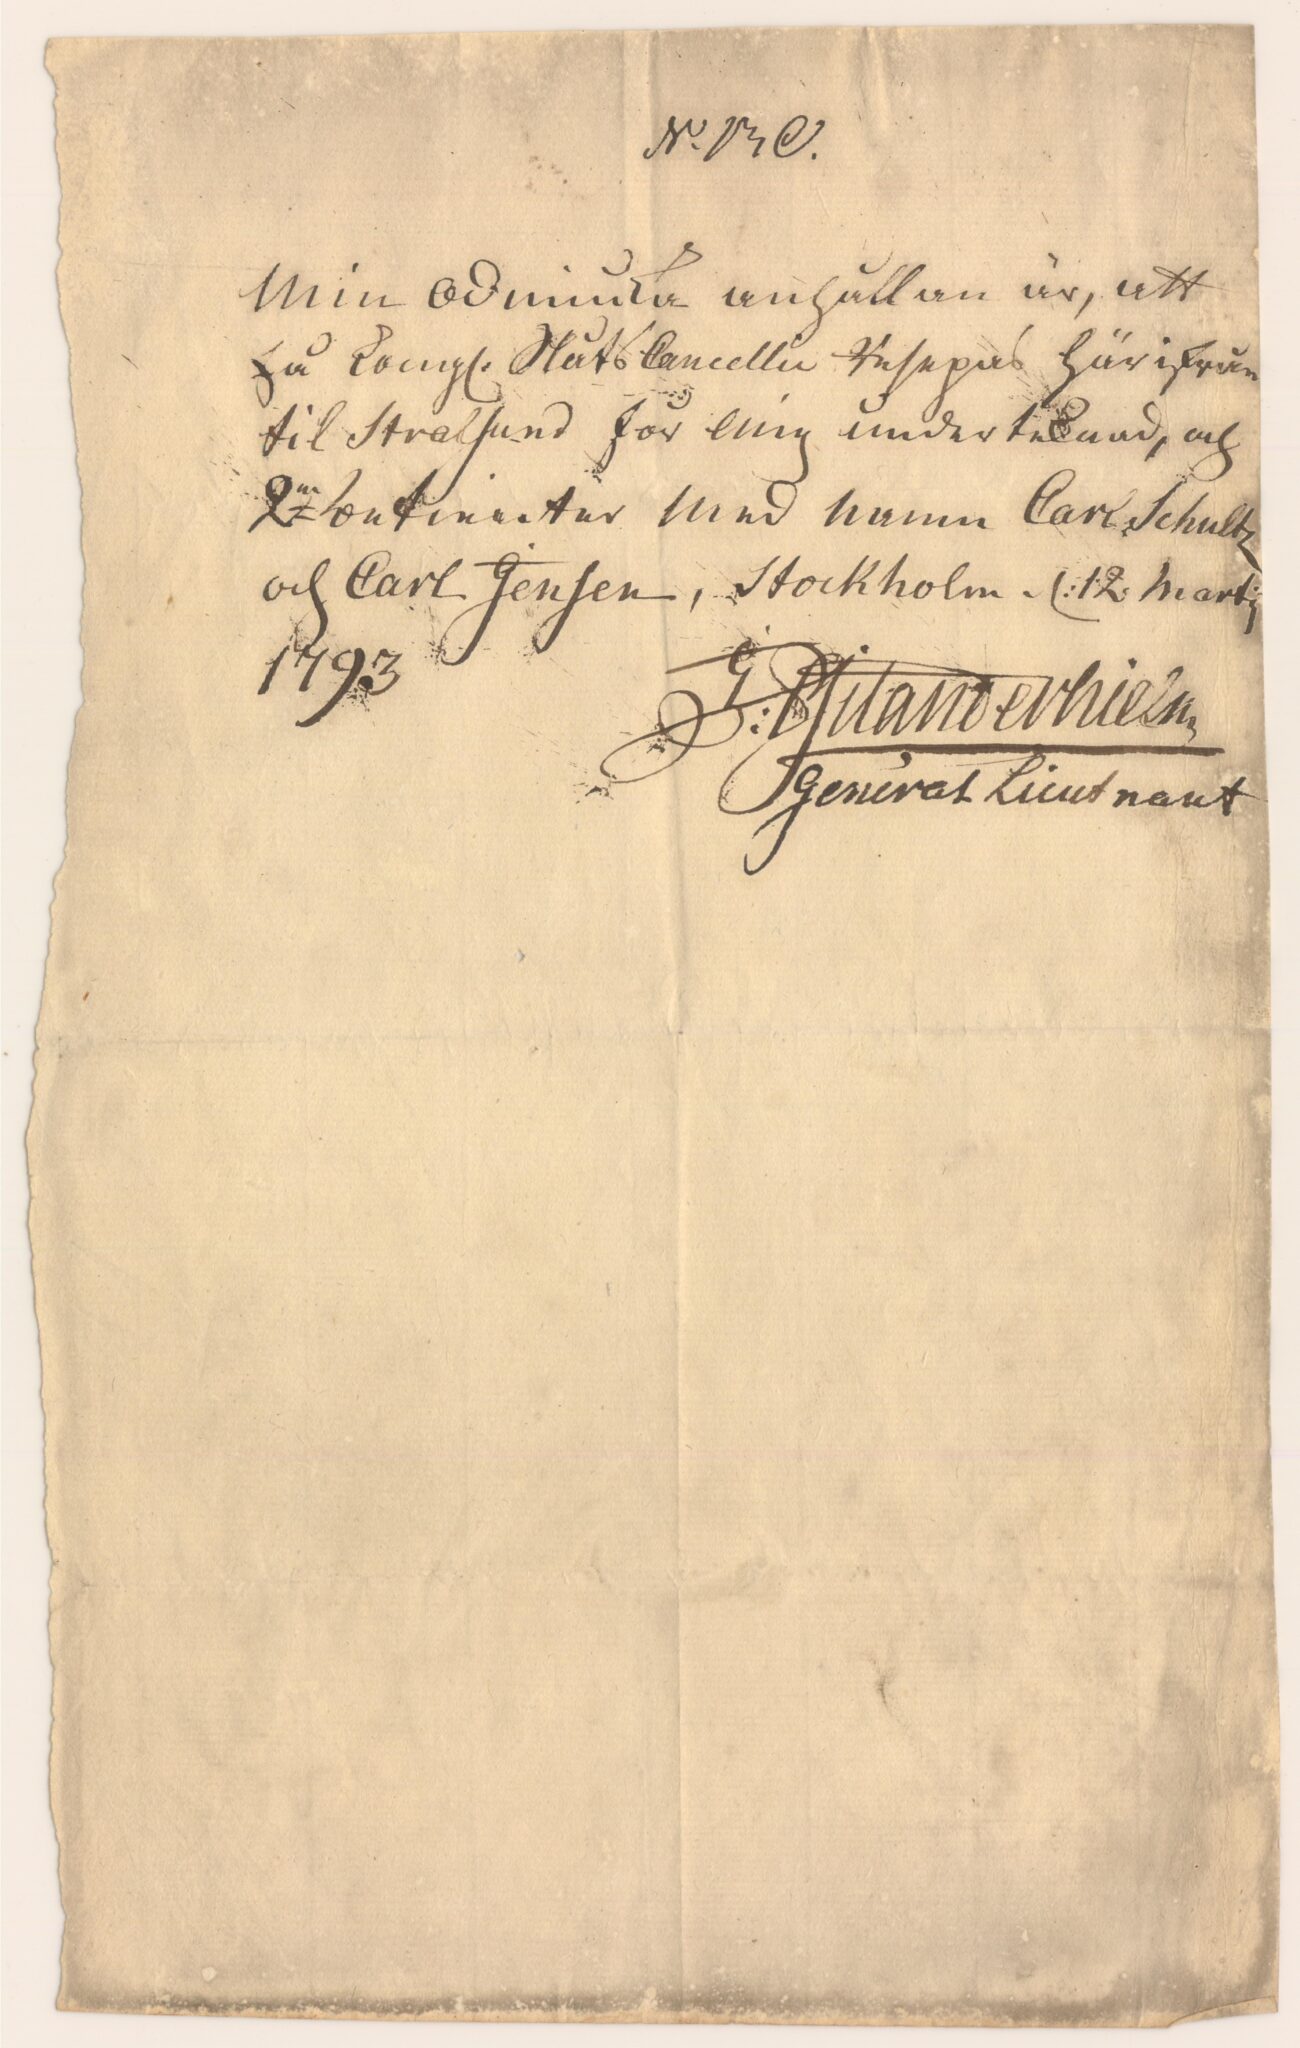 No. 13 C.
Min ödmiuka anhållan är, att
få kongl. StatsCancellie Resepas härifrån
til Stralsund för mig undertecknad, och
2ne Betienter med namn Carl Schultz
och Carl Jensen, Stockholm d: 12 Martij
1793
General Lieutnant